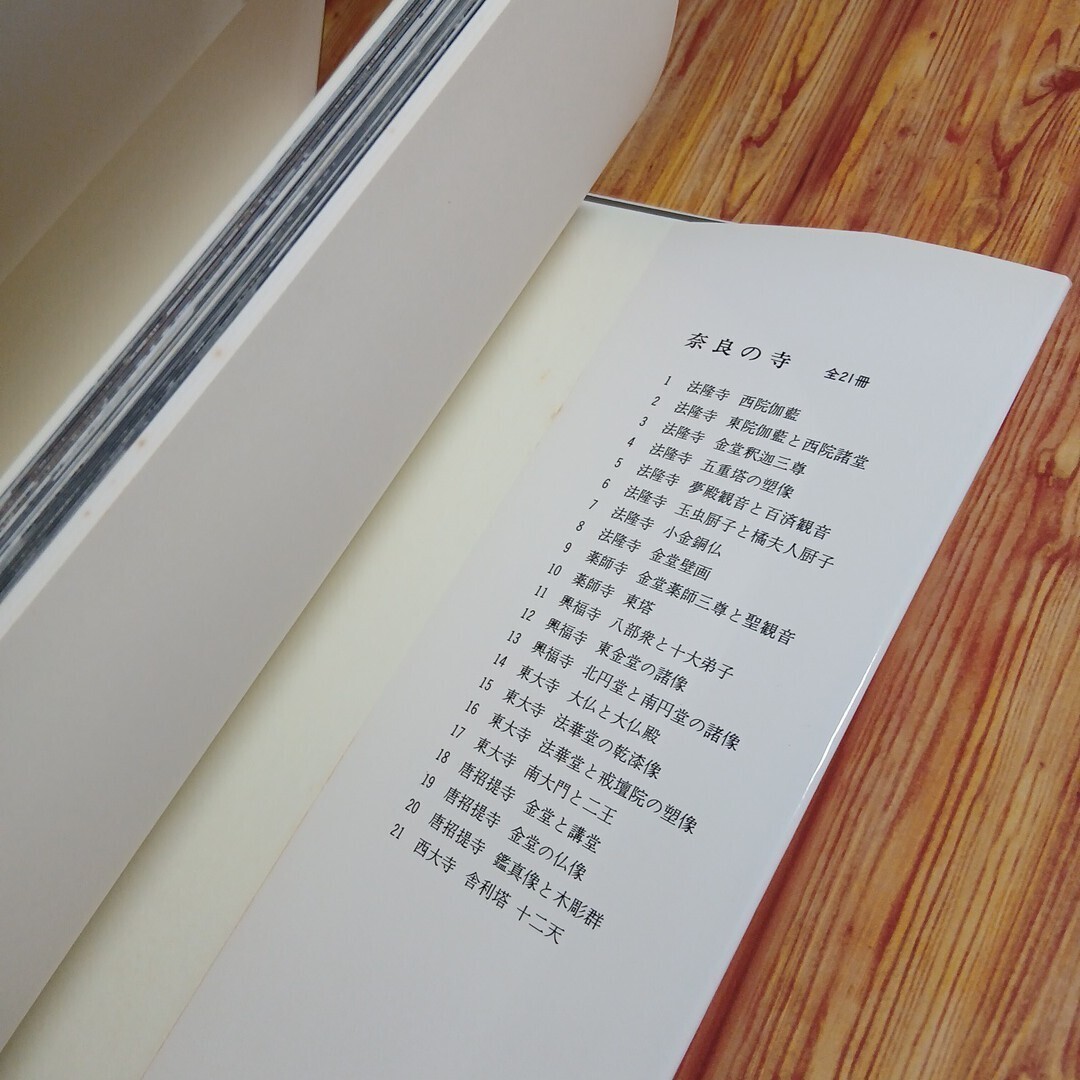 奈良の寺 全21冊
1 法隆寺 西院伽藍
2 法隆寺 東院伽藍と西院諸堂
3 法隆寺 金堂釈迦三尊
4 法隆寺 五重塔の塑像
5 法隆寺 夢殿観音と百済観音
6 法隆寺 玉虫厨子と橘夫人厨子
7 法隆寺 小金銅仏
8 法隆寺 金堂壁画
9 薬師寺 金堂薬師三尊と聖観音
10 薬師寺 東塔
11 興福寺 八部衆と十大弟子
12 興福寺 東金堂の諸像
13 興福寺 北円堂と南円堂の諸像
14 東大寺 大仏と大仏殿
15 東大寺 法華堂の乾漆像
16 東大寺 法華堂と戒壇院の塑像
17 東大寺 南大門と二王
18 唐招提寺 金堂と講堂
19 唐招提寺 金堂の仏像
20 唐招提寺 鑑真像と木彫群
21 西大寺 舎利塔 十二天